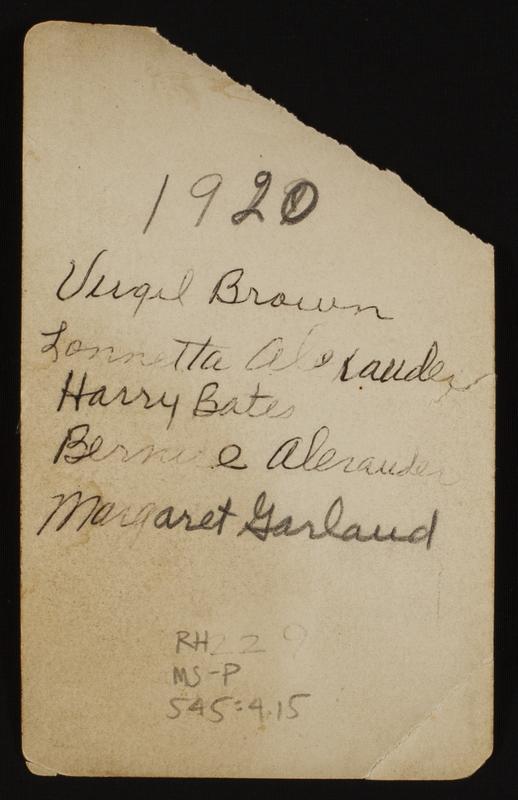 1920
Virgil Brown
Lonnetta Alexander
Harry Bates
Bernice Alexander
Margaret Garland
RH 229
MS-P
545:4.15